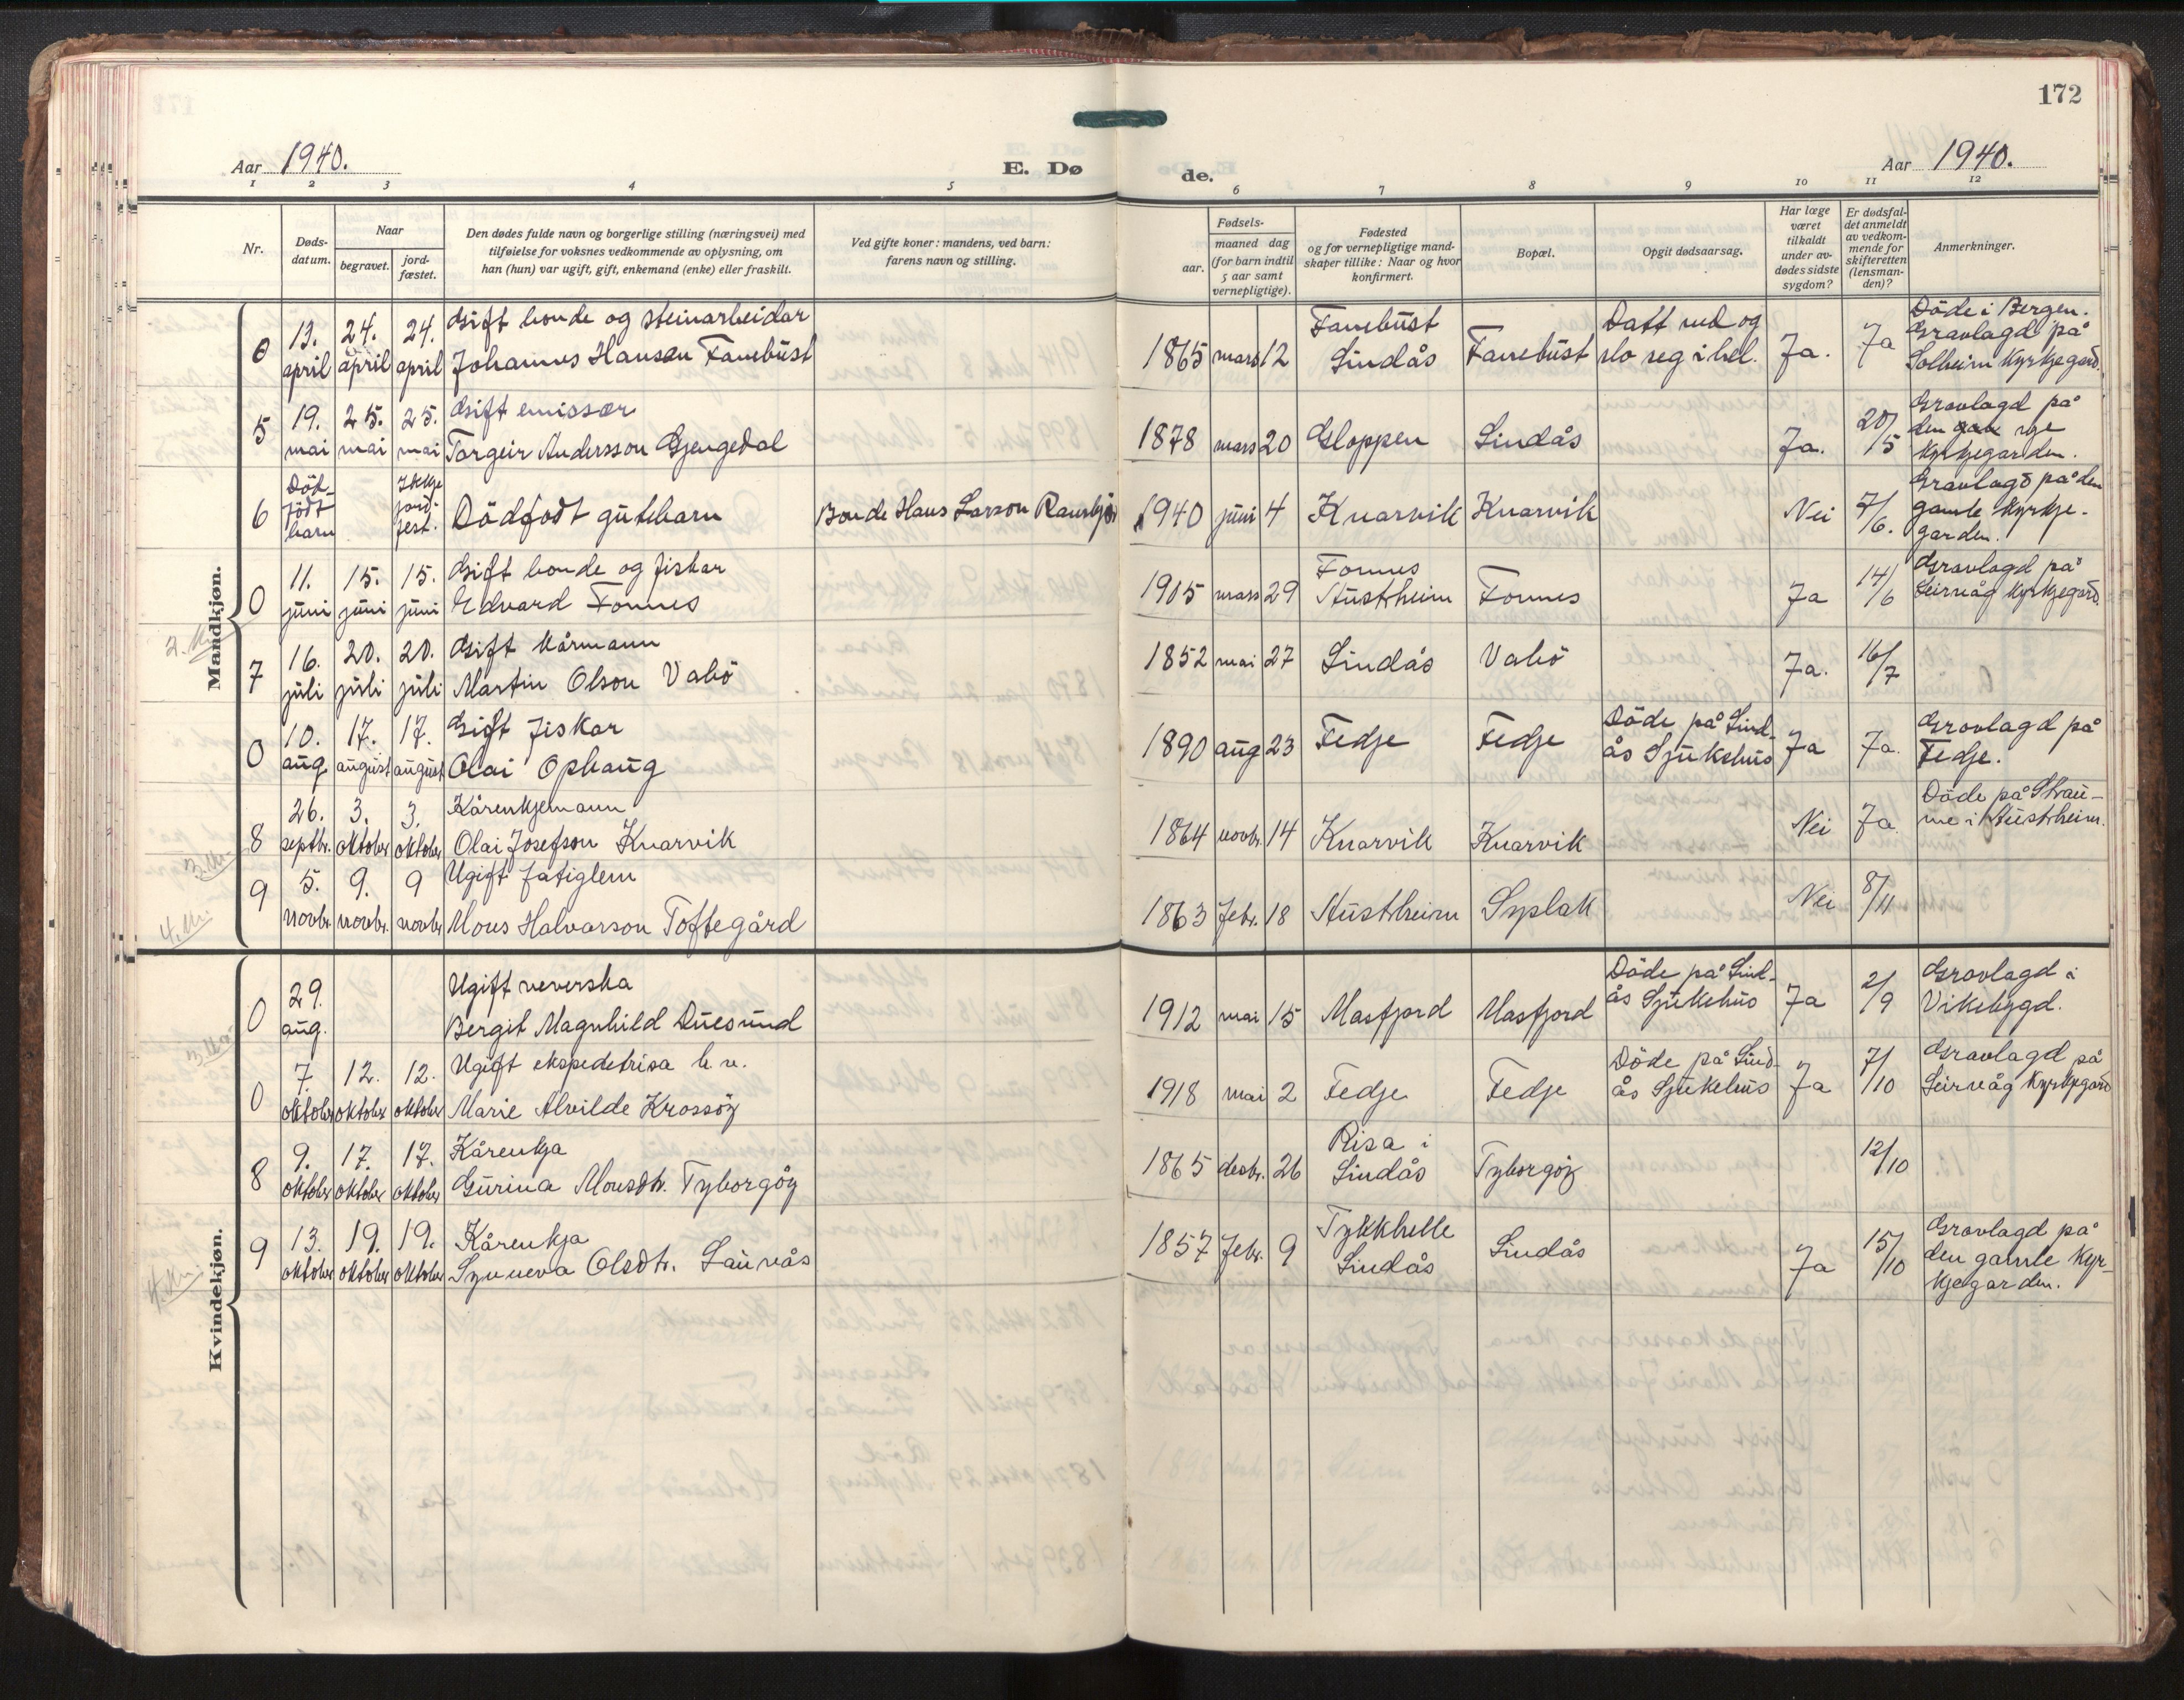 172
Aar 1940.
E. Dø
de.
Aar 1940.
1 2 3 4 5 6 7 8 9 10 11 12
Nr.
Døds-
datum.
Naar
begravet.
jord-
fæstet.
Den dødes fulde navn og borgerlige stilling (næringsvei) med
tilføielse for voksnes vedkommende av oplysning, om
han (hun) var ugift, gift, enkemand (enke) eller fraskilt.
Ved gifte koner: mandens, ved barn:
farens navn og stilling.
Fødsels-
aar.
maaned dag
(for barn indtil
5 aar samt
vernepligtige).
Fødested
og for vernepligtige mand-
skaper tillike: Naar og hvor
konfirmert.
Bopæl.
Opgit dødsaarsag.
Har læge
været
tilkaldt
under av-
dødes sidste
sygdom?
Er dødsfal-
det anmeldt
av vedkom-
mende for
skifteretten
(lensman-
den)?
Anmerkninger.
Mandkjøn.
0
13.
april
24.
april
24.
april
Gift bonde og steinarbeidar
Johannes Hansen Fanebust
1865 mars 12
Fanebust
Lindås
Fanebust
Datt ned og
slo seg i hel.
Ja.
Ja
Døde i Bergen.
Gravlagd på
Solheim Kyrkjegard.
5
19.
mai
25.
mai
25.
mai
Gift emissær
Torgeir Andersson Gjengedal
1878 mars 20
Gloppen
Lindås
Ja.
20/5
Gravlagd på
den nye
Kyrkjegarden.
6
Död-
födt
barn
Ikkje
jord-
fest.
Dödfödt gutebarn
Bonde Hans Larsson
1940 juni 4
Knarvik
Knarvik
Nei
7/6.
Gravlagd på den
gamle Kyrkje-
garden.
0
11.
juni
15.
juni
15.
juni
Gift bonde og fiskar
Edvard Fonnes
1905 mars 29
Fonnes
Austrheim
Fonnes
Ja
14/6
Gravlagd på
Leirvåg Kyrkjegard.
2.
7
16.
juli
20.
juli
20.
juli
Gift Kårmann
Martin Olson Vabö
1852 mai 27
Lindås
Vabö
Ja.
16/7
0
10.
aug
17.
august
17.
august
Gift fiskar
Olai Ophaug
1890 aug 23
Fedje
Fedje
Döde på Lind-
ås Sjukehus
Ja
Ja.
Gravlagd på
Fedje.
8
26.
septbr.
3.
oktober
3.
oktober
Kårenkjemann
Olai Josefson Knarvik
1864 novbr. 14
Knarvik
Knarvik
Nei
Ja
Döde på Strau-
me i Austrheim.
9
5.
novbr.
9.
novbr.
9
novbr.
Ugift fatiglem
Mons Halvarson Toftegård
1863 febr. 18
Austrheim
Syslak
Nei
8/11
Kvindekjøn.
0
29.
aug.
Ugift veverska
Bergit Magnhild Duesund
1912 mai 15
Masfjord
Masfjord
Döde på Lind-
ås Sjukehus
Ja
2/9
Gravlagd i
Vikebygd.
0
7.
oktober
12.
oktober
12.
oktober
Ugift ekspedetrisa h. v.
Marie Alvilde Krossöy
1918 mai 2
Fedje
Fedje
Döde på Lind-
ås Sjukehus
Ja
7/10
Gravlagd på
Leirvåg Kyrkjegard
8
9.
oktober
17.
oktober
17.
oktober
Kårenkja
Gurina Monsdtr. Tyborgöy
1865 desbr. 26
Risa i
Lindås
Tyborgöy
12/10
9
13.
oktober
19.
oktober
19.
oktober
Kårenkja
Synneva Olsdtr. Laurås
1857 febr. 9
Tykkhelle
Lindås
Lindås
Ja
15/10
Gravlagd på
den gamle Kyr-
kjegarden.